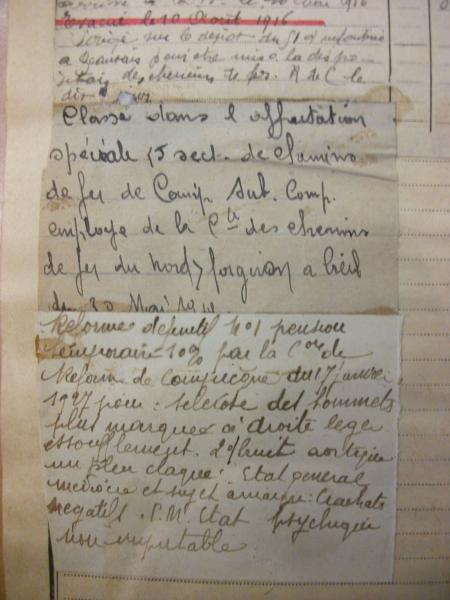 Evacué le 10 Août 1916
Dirigé sur le dépôt du 51e d'infanterie
a Beauvais peut être mis à la dispo-
sition des chemins de fer. R de C le
dit jour
Classé dans l'affectation
spéciale 5 sect. de chemins
de fer de Camp. Sub. Comp.
employé de la Cie des chemins
de fer du Nord forgeron a Creil
du 30 Mai
Réforme définitif No1 pension
temporaire 10% par la Con de
Réforme de Compiègne du 17 janvier
1927 pour: sclérose des sommets
plus marquée à droite leger
essoufflement. 2e bruit aortique
un peu claqué. Etat general
médiocre et sujet amaigri: Crachats
negatifs. P.M. Etat psychique
non imputable